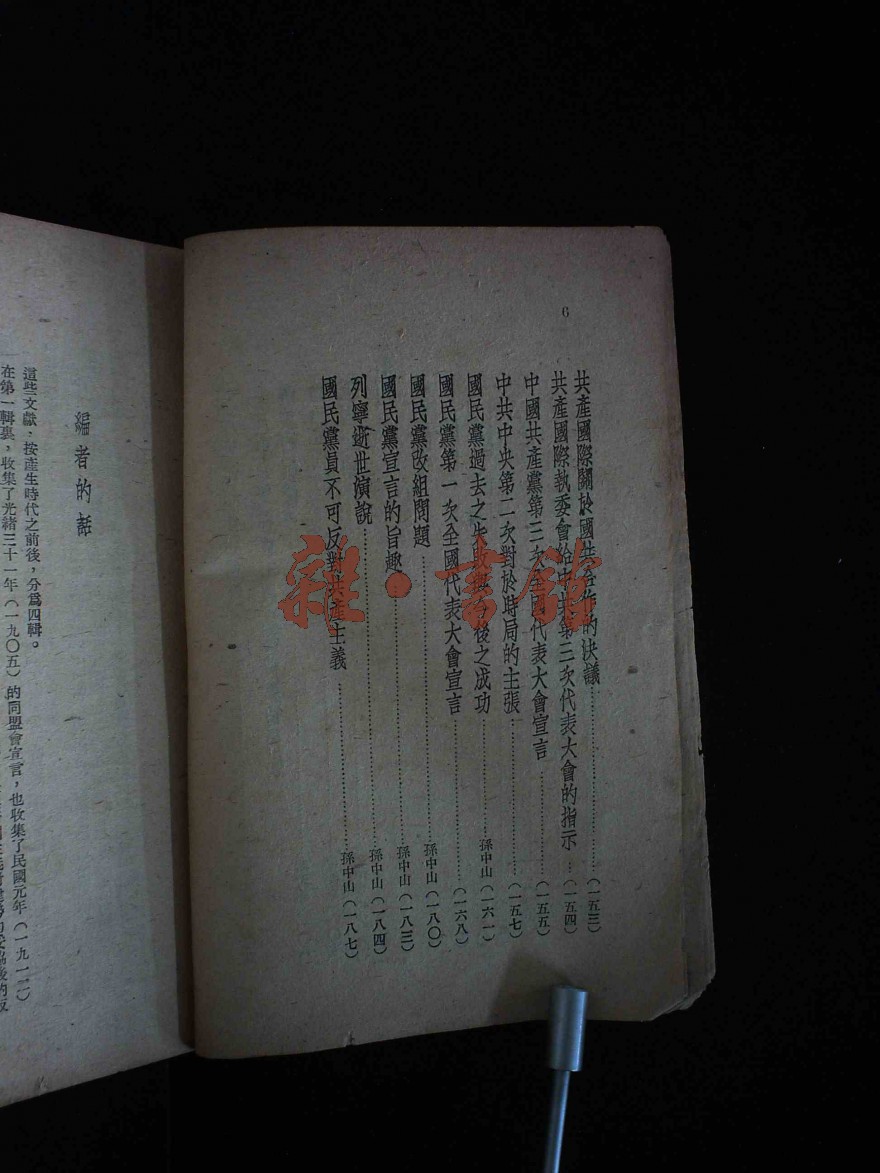 6
共產國際關於國共合作的決議………(一五三)
共產國際執委會給中共第三次代表大會的指示…(一五四)
中國共產黨第三次全國代表大會宣言………(一五五)
中共中央第二次對於時局的主張………(一五七)
國民黨過去之失敗與今後之成功………孫中山(一六一)
國民黨第一次全國代表大會宣言………(一六八)
國民黨改組問題………孫中山(一八〇)
國民黨宣言的旨趣………孫中山(一八三)
列寧逝世演說………孫中山(一八四)
國民黨員不可反對共產主義………孫中山(一八七)
編者的話
這些文獻,按產生時代之前後,分爲四輯。
在第一輯裏,收集了光緒三十一年(一九〇五)的同盟會宣言,也收集了民國元年(一九一二)
雜·書館